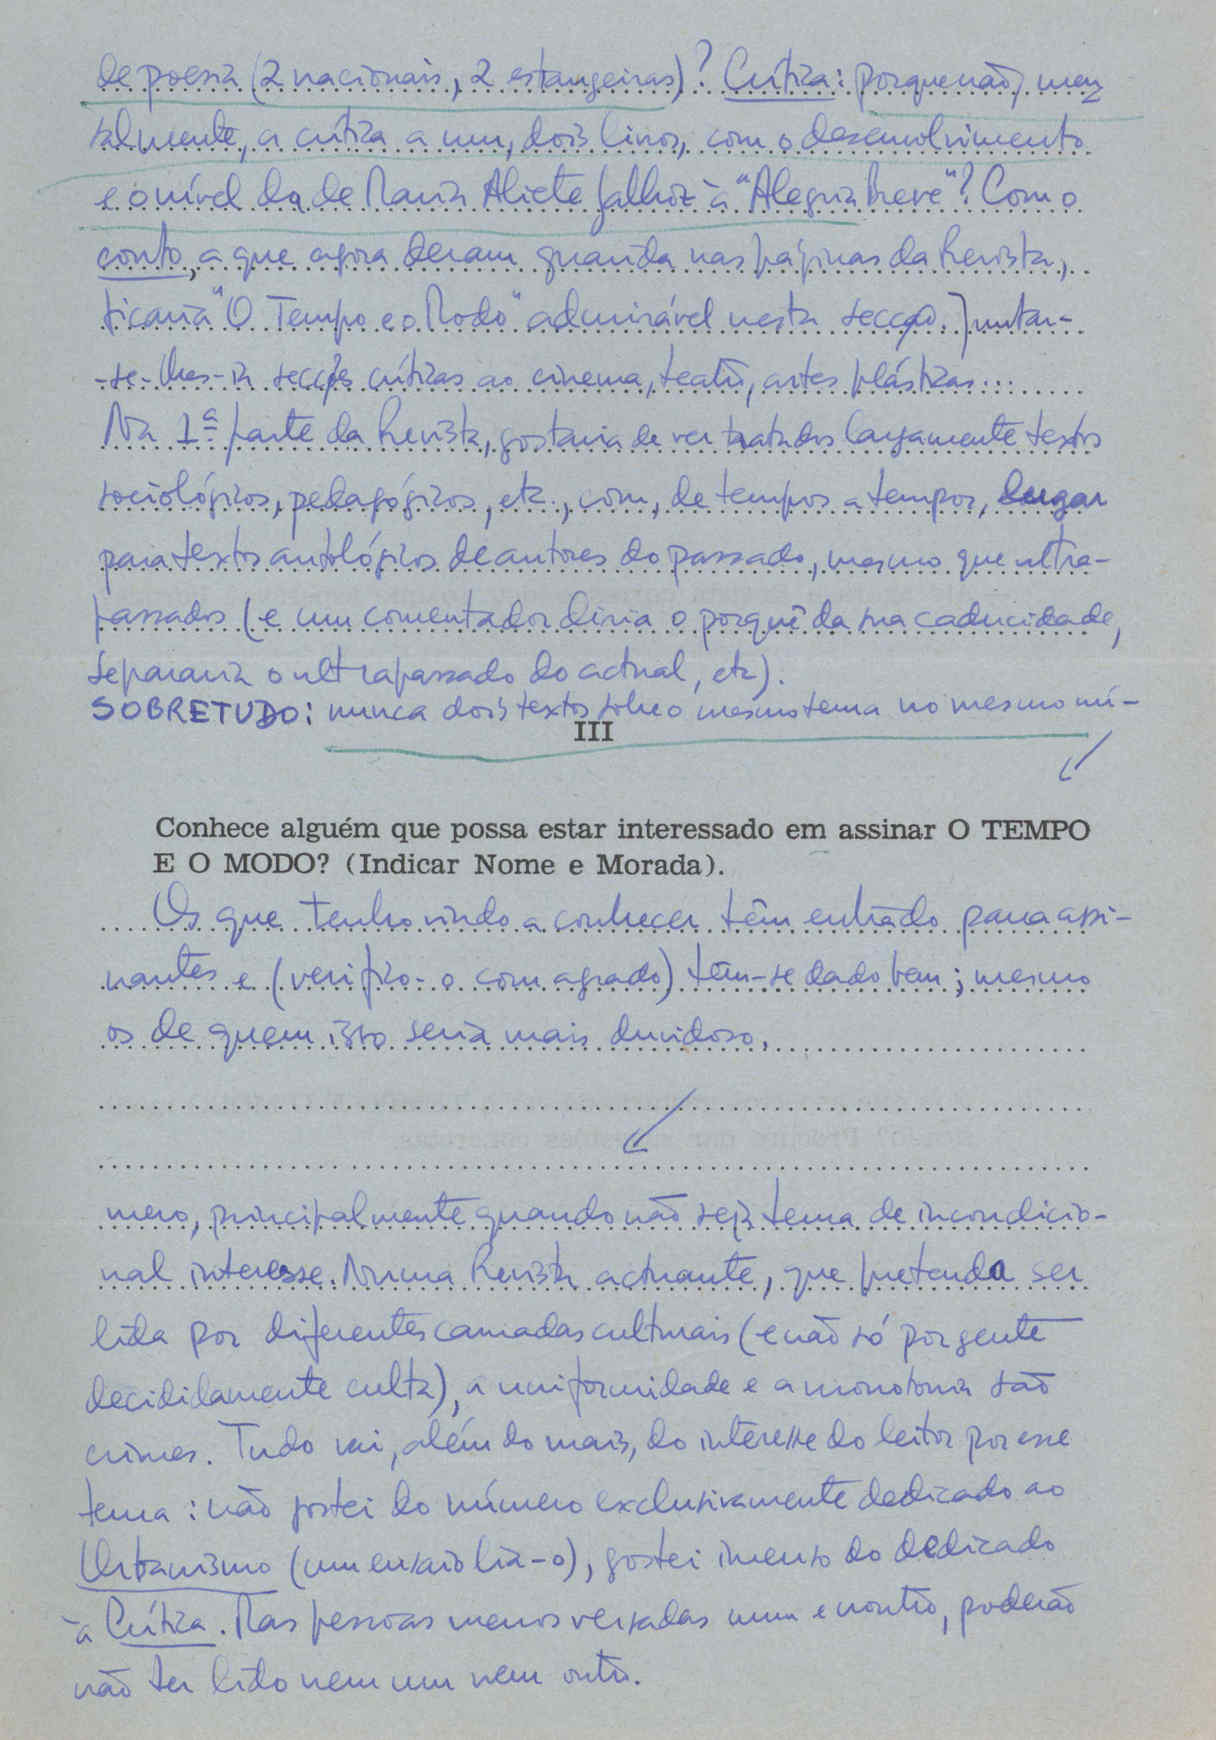 de poesia (2 nacionais, 2 estangeiras)? Crítica: porque não, men
salmente, a crítica a um, dois livros, com o desenvolvimento
e o nível da de Maria Aliete Galhoz à "Alegria breve"? Com o
conto, a que agora deram guarida nas páginas da Revista,
ficaria "O Tempo e o Modo" admirável nesta secção. Juntar-
-se-lhes-ia secções críticas ao cinema, teatro, artes plásticas...
Na 1ª parte da Revista, gostaria de ver tratados largamente textos
sociológicos, pedagógicos, etc., com, de tempos a tempos, lugar
para textos antológicos de autores do passado, mesmo que ultra-
passados (e um comentador diria o porquê da sua caducidade,
separaria o ultrapassado do actual, etc).
SOBRETUDO: nunca dois textos sobre o mesmo tema no mesmo nú-
III
Conhece alguém que possa estar interessado em assinar O TEMPO
E O MODO? (Indicar Nome e Morada).
Os que tenho vindo a conhecer têm entrado para assi-
nantes e (verifico-o com agrado) têm-se dado bem; mesmo
os de quem isso seria mais duvidoso.
mero, principalmente quando não seja tema de incondicio-
nal interesse. Numa Revista actuante, que pretenda ser
lida por diferentes camadas culturais (e não só por gente
decididamente culta), a uniformidade e a monotonia são
crimes. Tudo vai, além do mais, do interesse do leitor por esse
tema: não gostei do número exclusivamente dedicado ao
Urbanismo (um ensaio lia-o), gostei imenso do dedicado
à Crítica. Mas pessoas menos versadas num e noutro, poderão
não ter lido nem um nem outro.